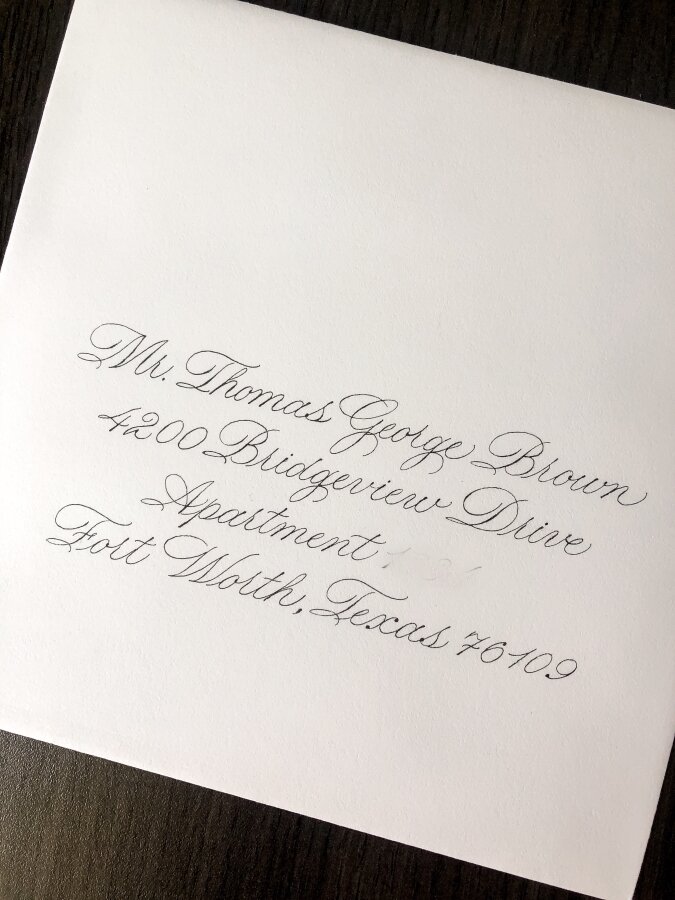 Mr. Thomas George Brown
4200 Bridgeview Drive
Apartment
Fort Worth, Texas 76109